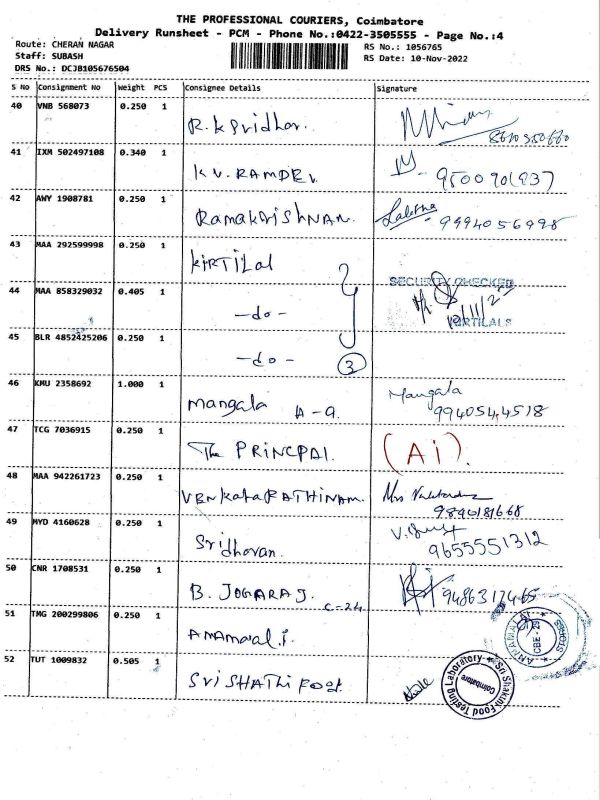 THE PROFESSIONAL COURIERS, Coimbatore
Delivery Runsheet - PCM - Phone No.:0422-3505555 - Page No.:4
Route: CHERAN NAGAR
RS No.: 1056765
Staff: SUBASH
RS Date: 10-Nov-2022
DRS No.: DCJB105676504
S No Consignment No Weight PCS Consignee Details Signature
40 VNB 568073 0.250 1 R.K Sridhar.
41 IXM 502497108 0.340 1 K V. RAMDEV.
42 AWY 1908781 0.250 1 RamaKrishNAN. Lalitha 9994056998
43 MAA 292599998 0.250 1 KIRTILal
SECURITY CHECKED
44 MAA 858329032 0.405 1 -do- 10/11/22
KIRTILALS
45 BLR 4852425206 0.250 1 -do- 3
46 KMU 2358692 1.000 1 Mangala A-9. Mangala 9940544518
47 TCG 7036915 0.250 1 The PRINCPAL. (Ai).
48 MAA 942261723 0.250 1 VenKataRATHINAM.
49 MYD 4160628 0.250 1 Sridharan. 9655551312
50 CNR 1708531 0.250 1 B. JOGARAJ. C=24
51 TMG 200299806 0.250 1
ANNAMALAI STORES CBE - 29
52 TUT 1009832 0.505 1 Sri SHATHi Food.
Sri Shakthi Food Testing Laboratory Coimbatore